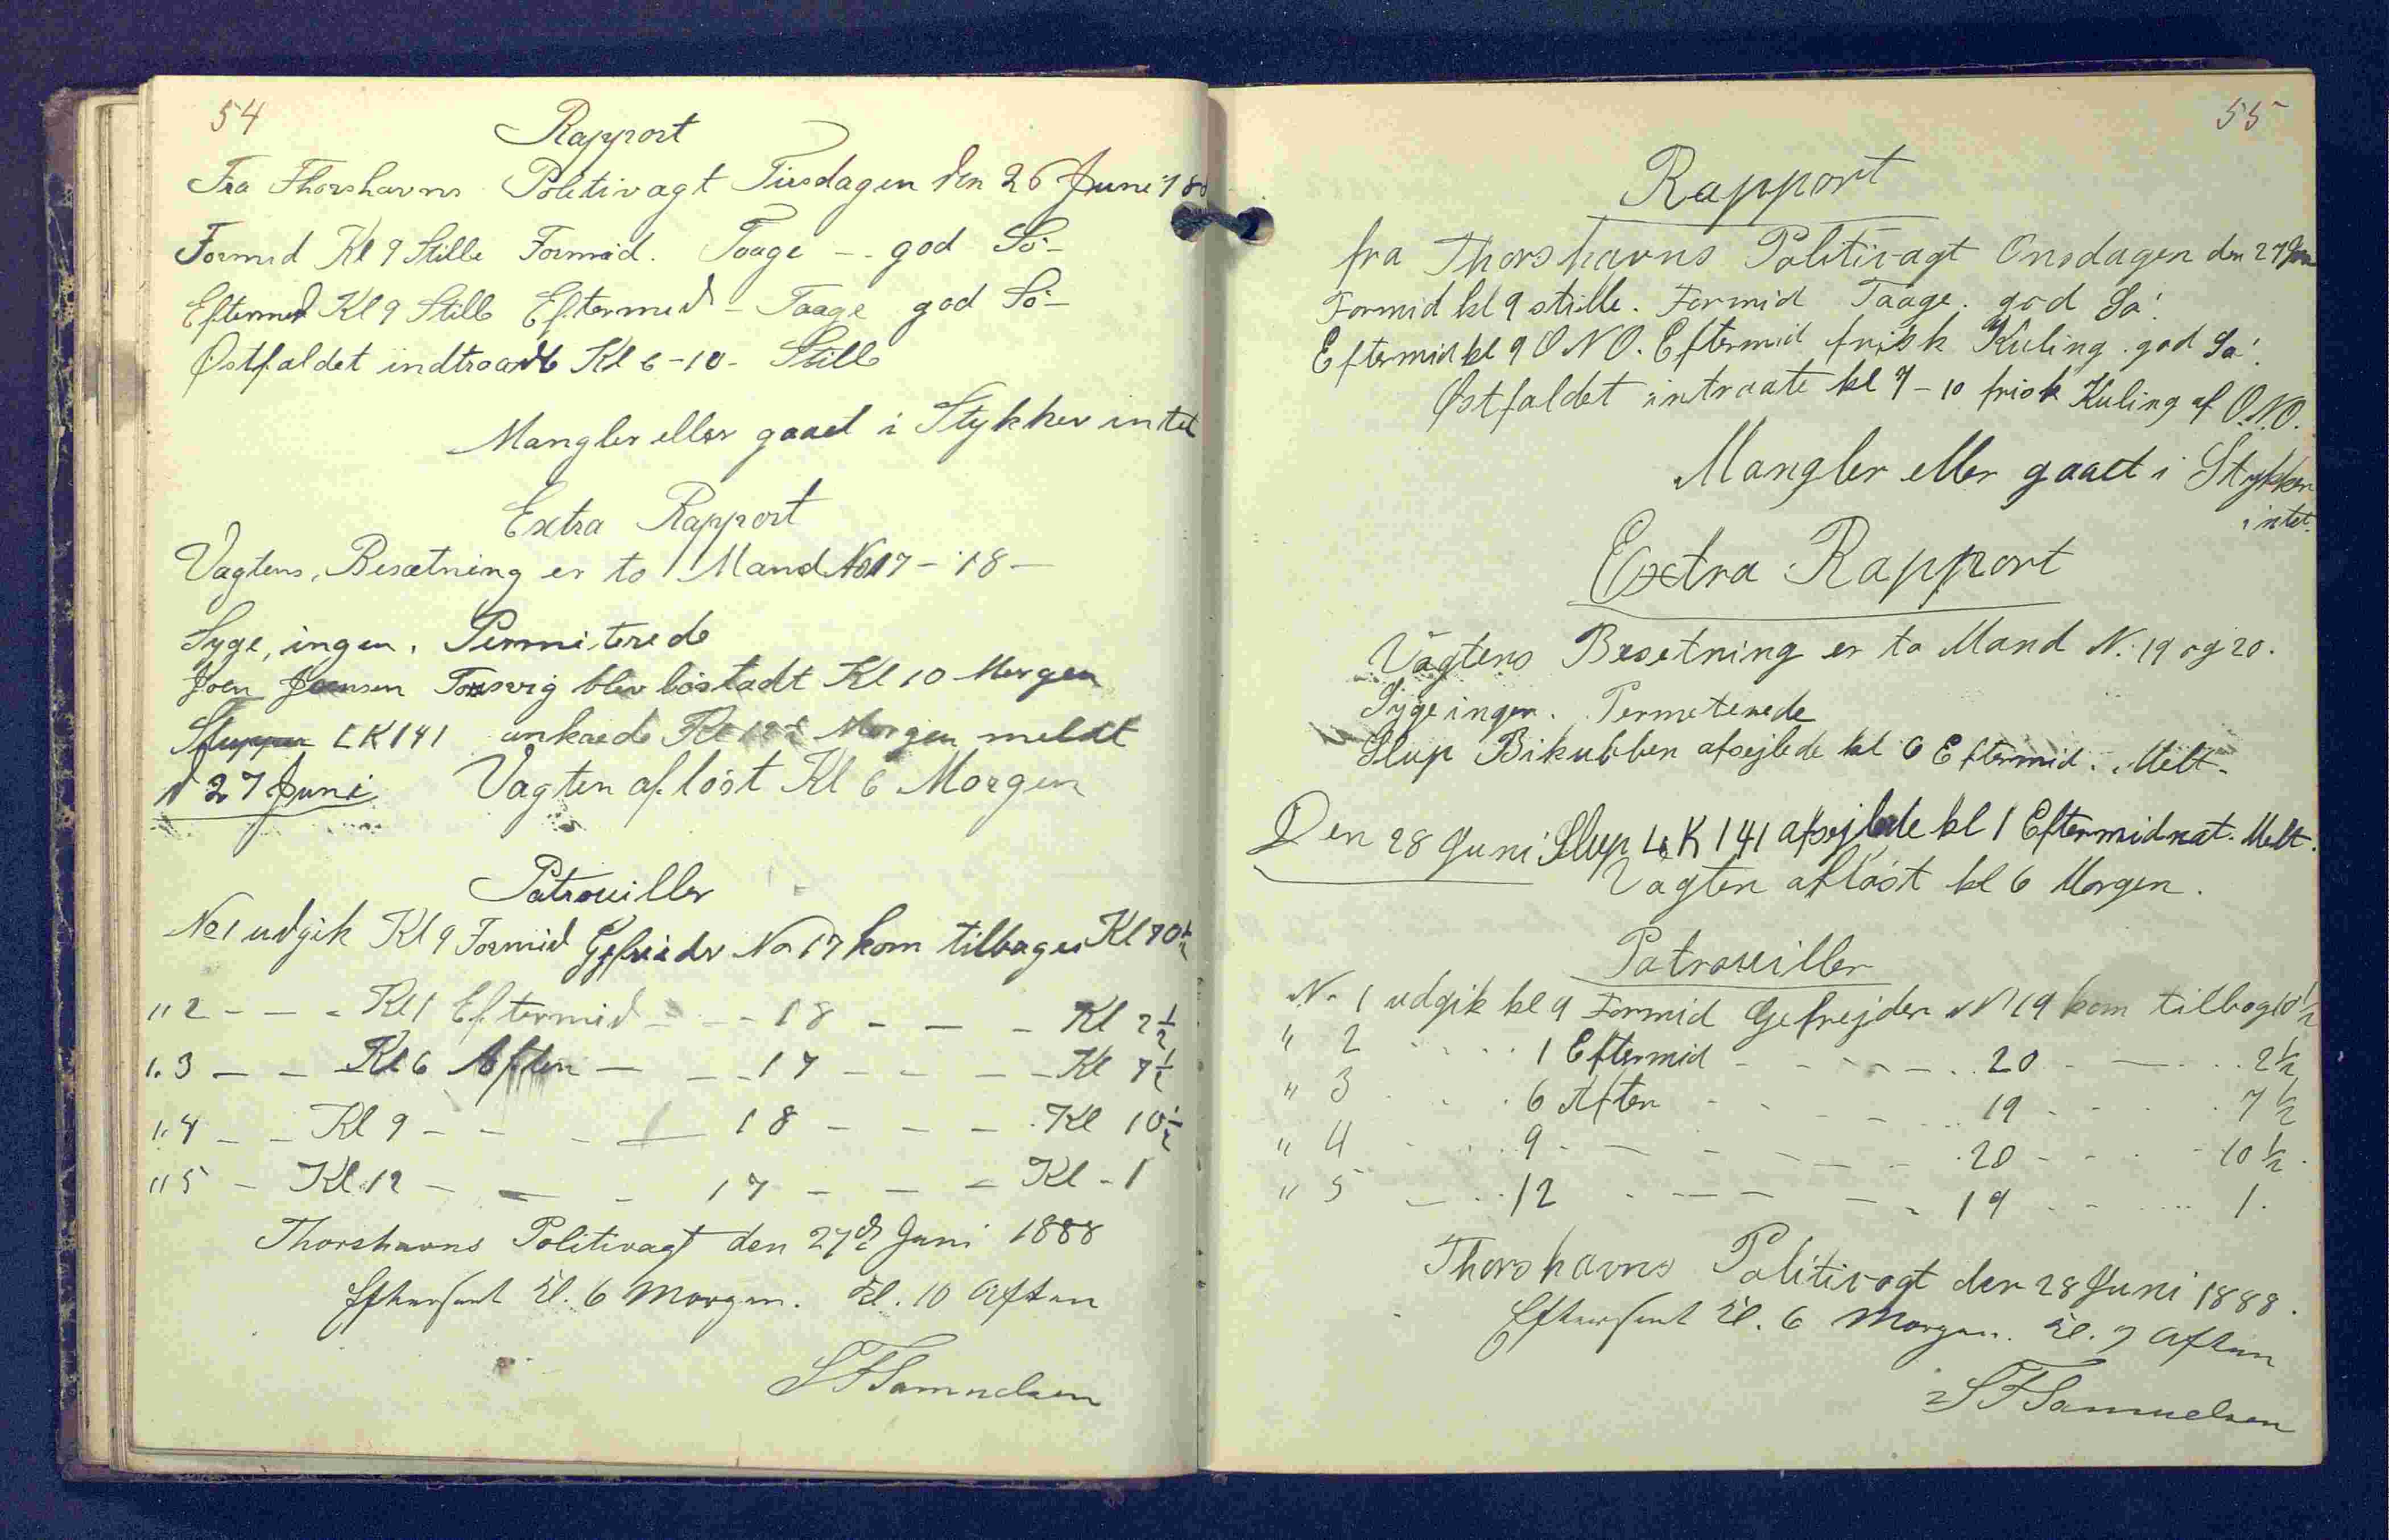 54
Rapport
Fra Thorshavns Politivagt Tirsdagen den 26 Juni 188
Formd Kl 9 Stille Formid. Taage - - god Sö -
Eftermd Kl 9 Stille Eftermid - Taage god Sö -
Østfaldet indtraadte Kl 6 - 10 - Stille
Mangler eller gaaet i Stykker intet
Extra Rapport
Vagtens, Besætning er to Mand No 17 - 18 -
Syge, ingen. Permiterede
Joen Joensen blev löstadt Kl 10 Morgen
LK 141 ankrede Kl Morgen meldt
d 27 Juni Vagten aflöst Kl 6 Morgen
Patrouiller
No 1 udgik Kl 9 Formid Gefrieder No 17 kom tilbage Kl 10½
" 2 - - - Kl 1 Eftermid - - - 18 - - - Kl 2½
" 3 - - Kl 6 Aften - - - 17 - - - - Kl 7½
" 4 - - Kl 9 - - - - 18 - - - Kl 10½
" 5 - Kl 12 - - - 17 - - - Kl - 1
Thorshavns Politivagt den 27de Juni 1888
Efterseet Kl. 6 Morgen. Kl. 10 Aften
SFSamuelsen
55
Rapport
fra Thorshavns Politivagt Onsdagen den 27 Jun
Formid kl 9 stille. Formid Taage. god Sö.
Eftermid kl 9 O N O. Eftermid frisk Kuling. god Sö.
Østfaldet intraate kl 7 - 10 frisk Kuling af O.N.O.
Mangler eller gaaet i Stykker
intet.
Extra Rapport
Vagtens Besetning er to Mand N. 19 og 20.
Syge ingen. Permeterede
Slup Bikubben afsejlede kl 6 Eftermid. Melt.
Den 28 Juni Slup LK 141 afsejlede kl 1 Eftermidnat. Melt.
Vagten aflöst kl 6 Morgen.
Patrouiller
N. 1 udgik kl 9 Formid Gefrejder N 19 kom tilbag 10½
" 2 . . . . 1 Eftermid - - - - - 20 - - . . 2½
" 3 . . . 6 Aften - - - - - 19 - - . . 7½
" 4 . . . 9 - - - - - - 20 - - . - 10½.
" 5 - . . 12 . - - - - 19 - - . . . 1.
Thorshavns Politivagt den 28 Juni 1888.
Efterseet Kl. 6 Morgen. Kl. 7 Aften
SFSamuelsen